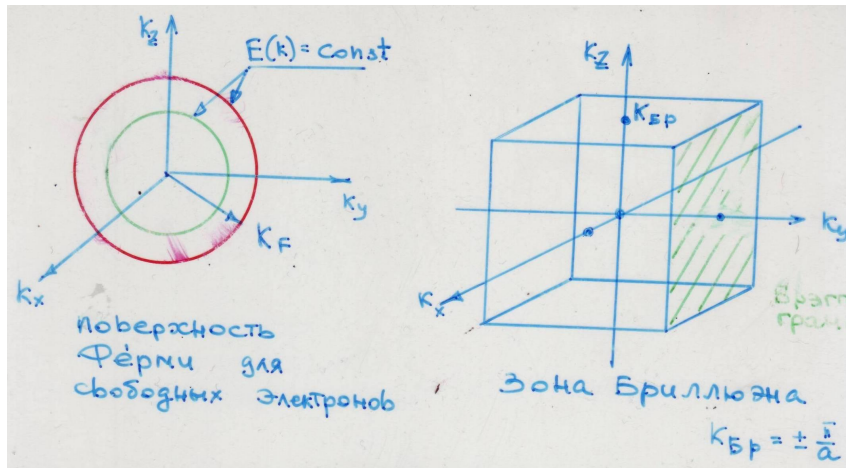 Kz
E(k) = const
Ky
KF
Kx
поверхность
Ферми для
свободных электронов
Kz
KБр
Ky
Kx
Зона Бриллюэна
KБр = ± π/a